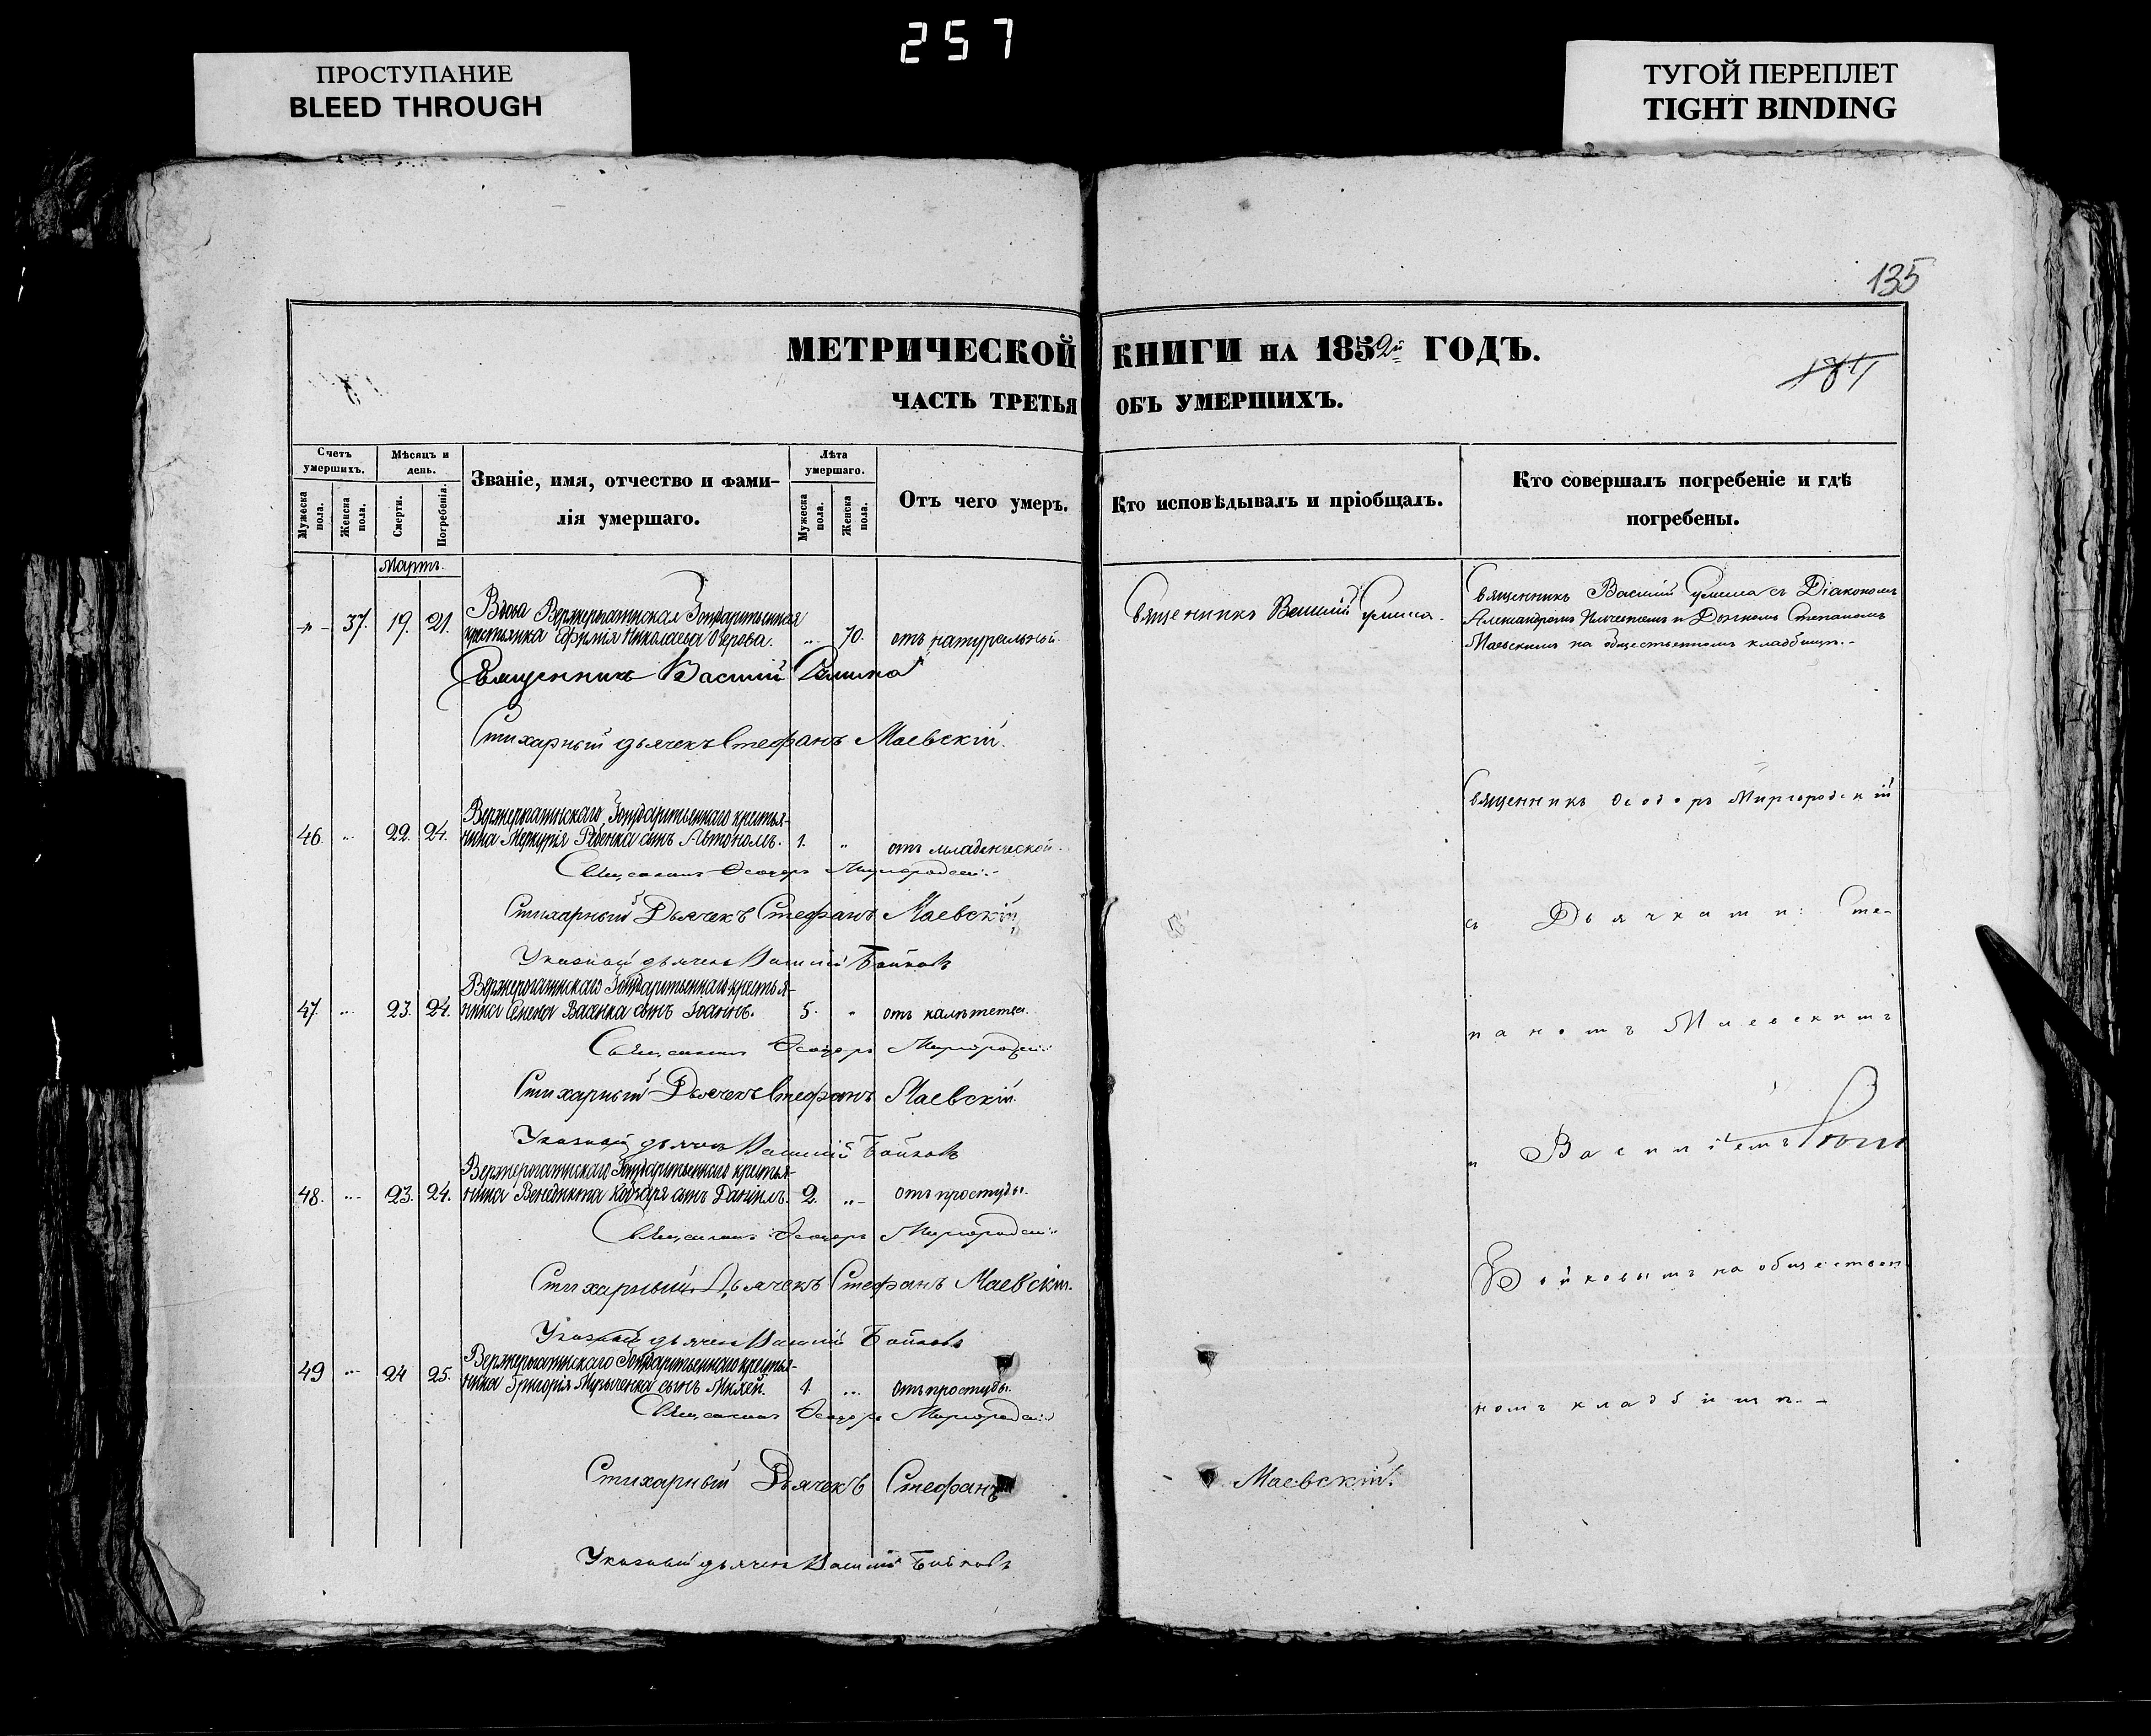 257
ПРОСТУПАНИЕ
BLEED THROUGH
ТУГОЙ ПЕРЕПЛЕТ
TIGHT BINDING
135
МЕТРИЧЕСКОЙ КНИГИ НА 1852й ГОДЪ.
ЧАСТЬ ТРЕТЬЯ ОБЪ УМЕРШИХЪ.
Счетъ умершихъ.
Мужеска пола.
Женска пола.
Мѣсяцъ и день.
Смерти.
Погребенія.
Званіе, имя, отчество и фами-
лія умершаго.
Лѣта умершаго.
Мужеска пола.
Женска пола.
Отъ чего умеръ.
Кто исповѣдывалъ и пріобщалъ.
Кто совершалъ погребеніе и гдѣ
погребены.
Мартъ.
37. 19. 21.
Государственная
крестьянка Ефимія Николаева 70. отъ натуральной.
Священникъ Василій
Священникъ Василій съ Діакономъ
Александромъ и Степаномъ
Маевскимъ на общественномъ кладбищѣ.-
Священникъ Василій
Стихарный дьячекъ Стефанъ Маевскій.
Священникъ Ѳеодоръ Миргородскій
Государственнаго крестья-
46. 22. 24. нина Меркурія сынъ Автономъ. 1. отъ младенческой.
Священникъ Ѳеодоръ Миргородскій
Стихарный Дьячекъ Стефанъ Маевскій,
съ Дьячками: Сте-
Указный дьячекъ Василій Бойковъ
Государственнаго крестья-
47. 23. 24. нина Семена сынъ Іоаннъ. 5. отъ
паномъ Маевскимъ
Священникъ Ѳеодоръ Миргородскій
Стихарный Дьячекъ Стефанъ Маевскій.
Указный дьячекъ Василій Бойковъ
и Василіемъ
Государственнаго крестья-
48. 23. 24. нина Венедикта Кобзаря сынъ Даніилъ. 2. отъ простуды.
Священникъ Ѳеодоръ Миргородскій
Стихарный Дьячекъ Стефанъ Маевскій.
Бойковымъ на обществен
Указный дьячекъ Василій Бойковъ
Государственнаго крестья-
49 24 25. нина Григорія сынъ Михей. 1. отъ простуды.
Священникъ Ѳеодоръ Миргородскій
номъ кладбищѣ.-
Стихарный Дьячекъ Стефанъ Маевскій.
Указный дьячекъ Василій Бойковъ